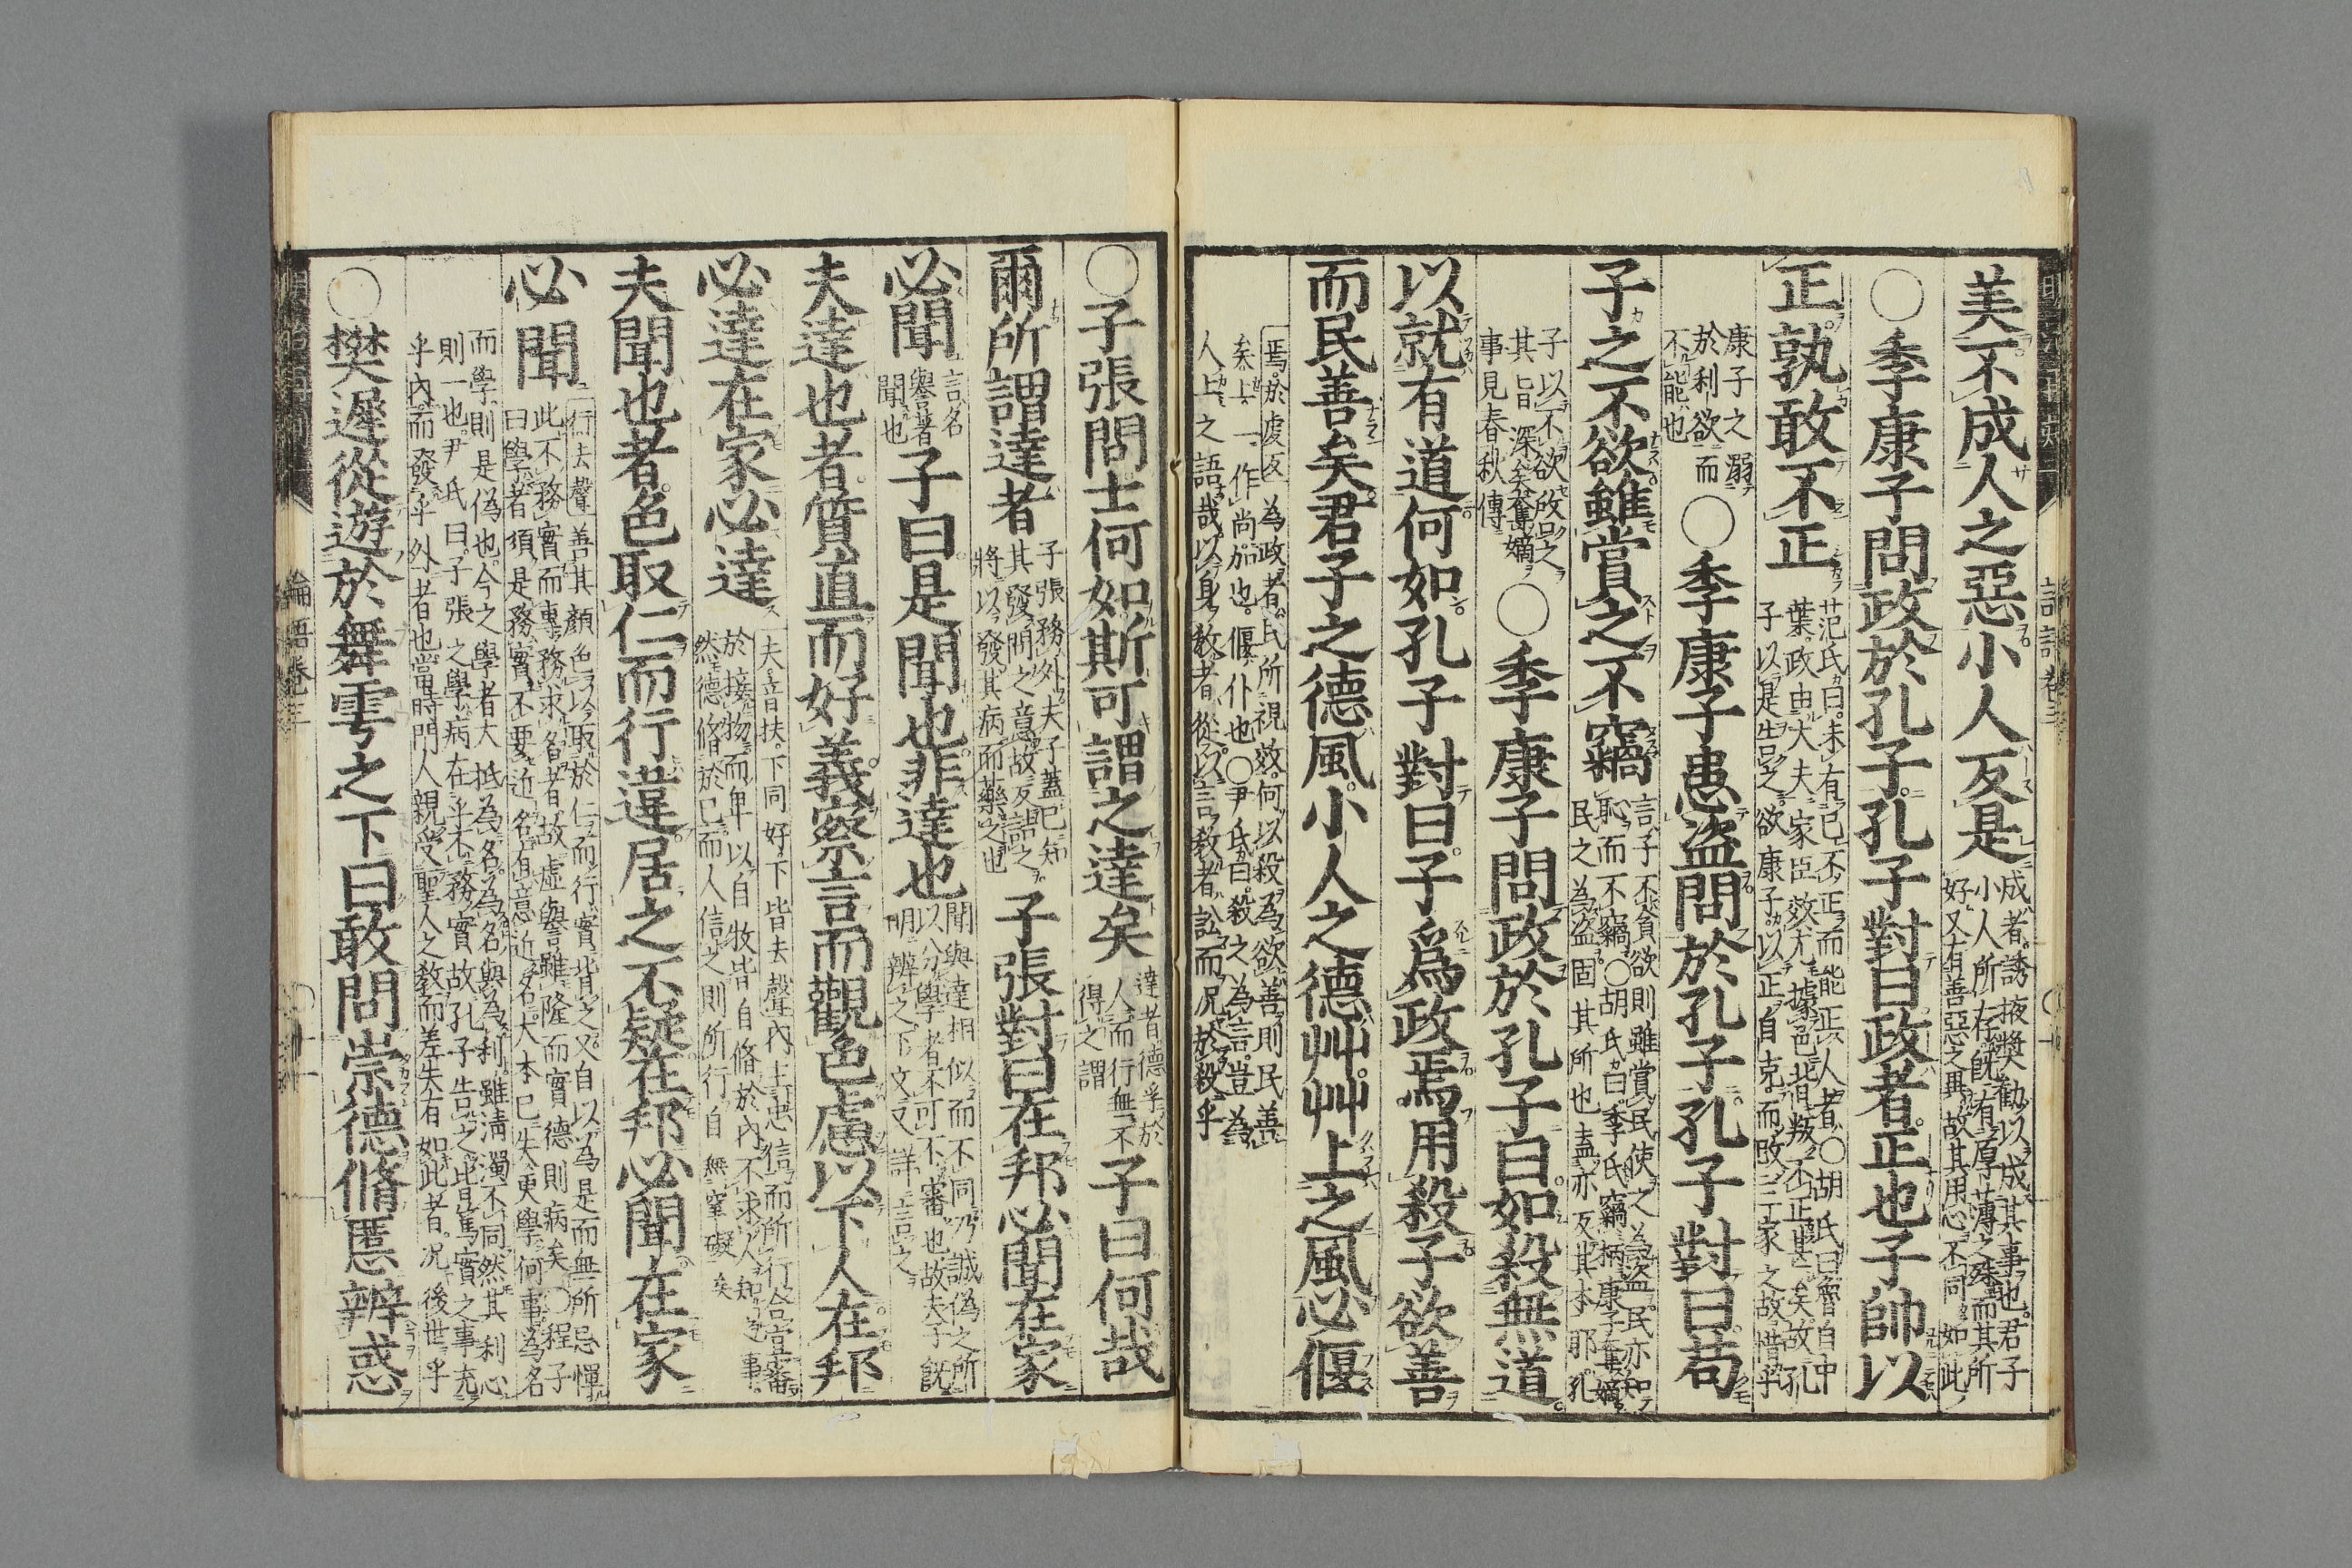 美不成人之惡小人反是
成者誘掖奬勸以成其事也君子
小人所存既有厚薄之殊而其所
好又有善惡之異故其用心不同如此
○季康子問政於孔子孔子對曰政者正也子帥以
正孰敢不正
范氏曰未有己不正而能正人者○胡氏曰魯自中
葉政由大夫家臣效尤據邑背叛不正甚矣故孔
子以是告之欲康子以正自克而改三家之故惜乎
康子之溺
於利欲而
不能也
○季康子患盜問於孔子孔子對曰苟
子之不欲雖賞之不竊
言子不貪欲則雖賞民使之為盜民亦知
恥而不竊○胡氏曰季氏竊柄康子奪嫡
民之為盜固其所也盍亦反其本耶孔
子以不欲啟之
其旨深矣奪嫡
事見春秋傳
○季康子問政於孔子曰如殺無道
以就有道何如孔子對曰子爲政焉用殺子欲善
而民善矣君子之德風小人之德艸艸上之風必偃
焉於虔反為政者民所視效何以殺為欲善則民善
矣上一作尚加也偃仆也○尹氏曰殺之為言豈為
人上之語哉以身教者從以言教者訟而況於殺乎
○子張問士何如斯可謂之達矣
達者德孚於
人而行無不
得之謂
子曰何哉
爾所謂達者
子張務外夫子蓋已知
其發問之意故反詰之
將以發其病而藥之也
子張對曰在邦必聞在家
必聞
言名
譽著
聞也
子曰是聞也非達也
聞與達相似而不同乃誠偽之所
以分學者不可不審也故夫子既
明辨之下文又詳言之
夫達也者質直而好義察言而觀色慮以下人在邦
必達在家必達
夫音扶下同好下皆去聲內主忠信而所行合宜審
於接物而卑以自牧皆自脩於內不求人知之事
然德脩於己而人信之則所行自無窒礙矣
夫聞也者色取仁而行違居之不疑在邦必聞在家
必聞
行去聲善其顏色以取於仁而行實背之又自以為是而無所忌憚
此不務實而專務求名者故虛譽雖隆而實德則病矣○程子
曰學者須是務實不要近名有意近名大本已失更學何事為名
而學則是偽也今之學者大抵為名為名與為利雖清濁不同然其利心
則一也尹氏曰子張之學病在乎不務實故孔子告之皆篤實之事充
乎內而發乎外者也當時門人親受聖人之教而差失有如此者況後世乎
○樊遲從遊於舞雩之下曰敢問崇德脩慝辨惑
論語卷三